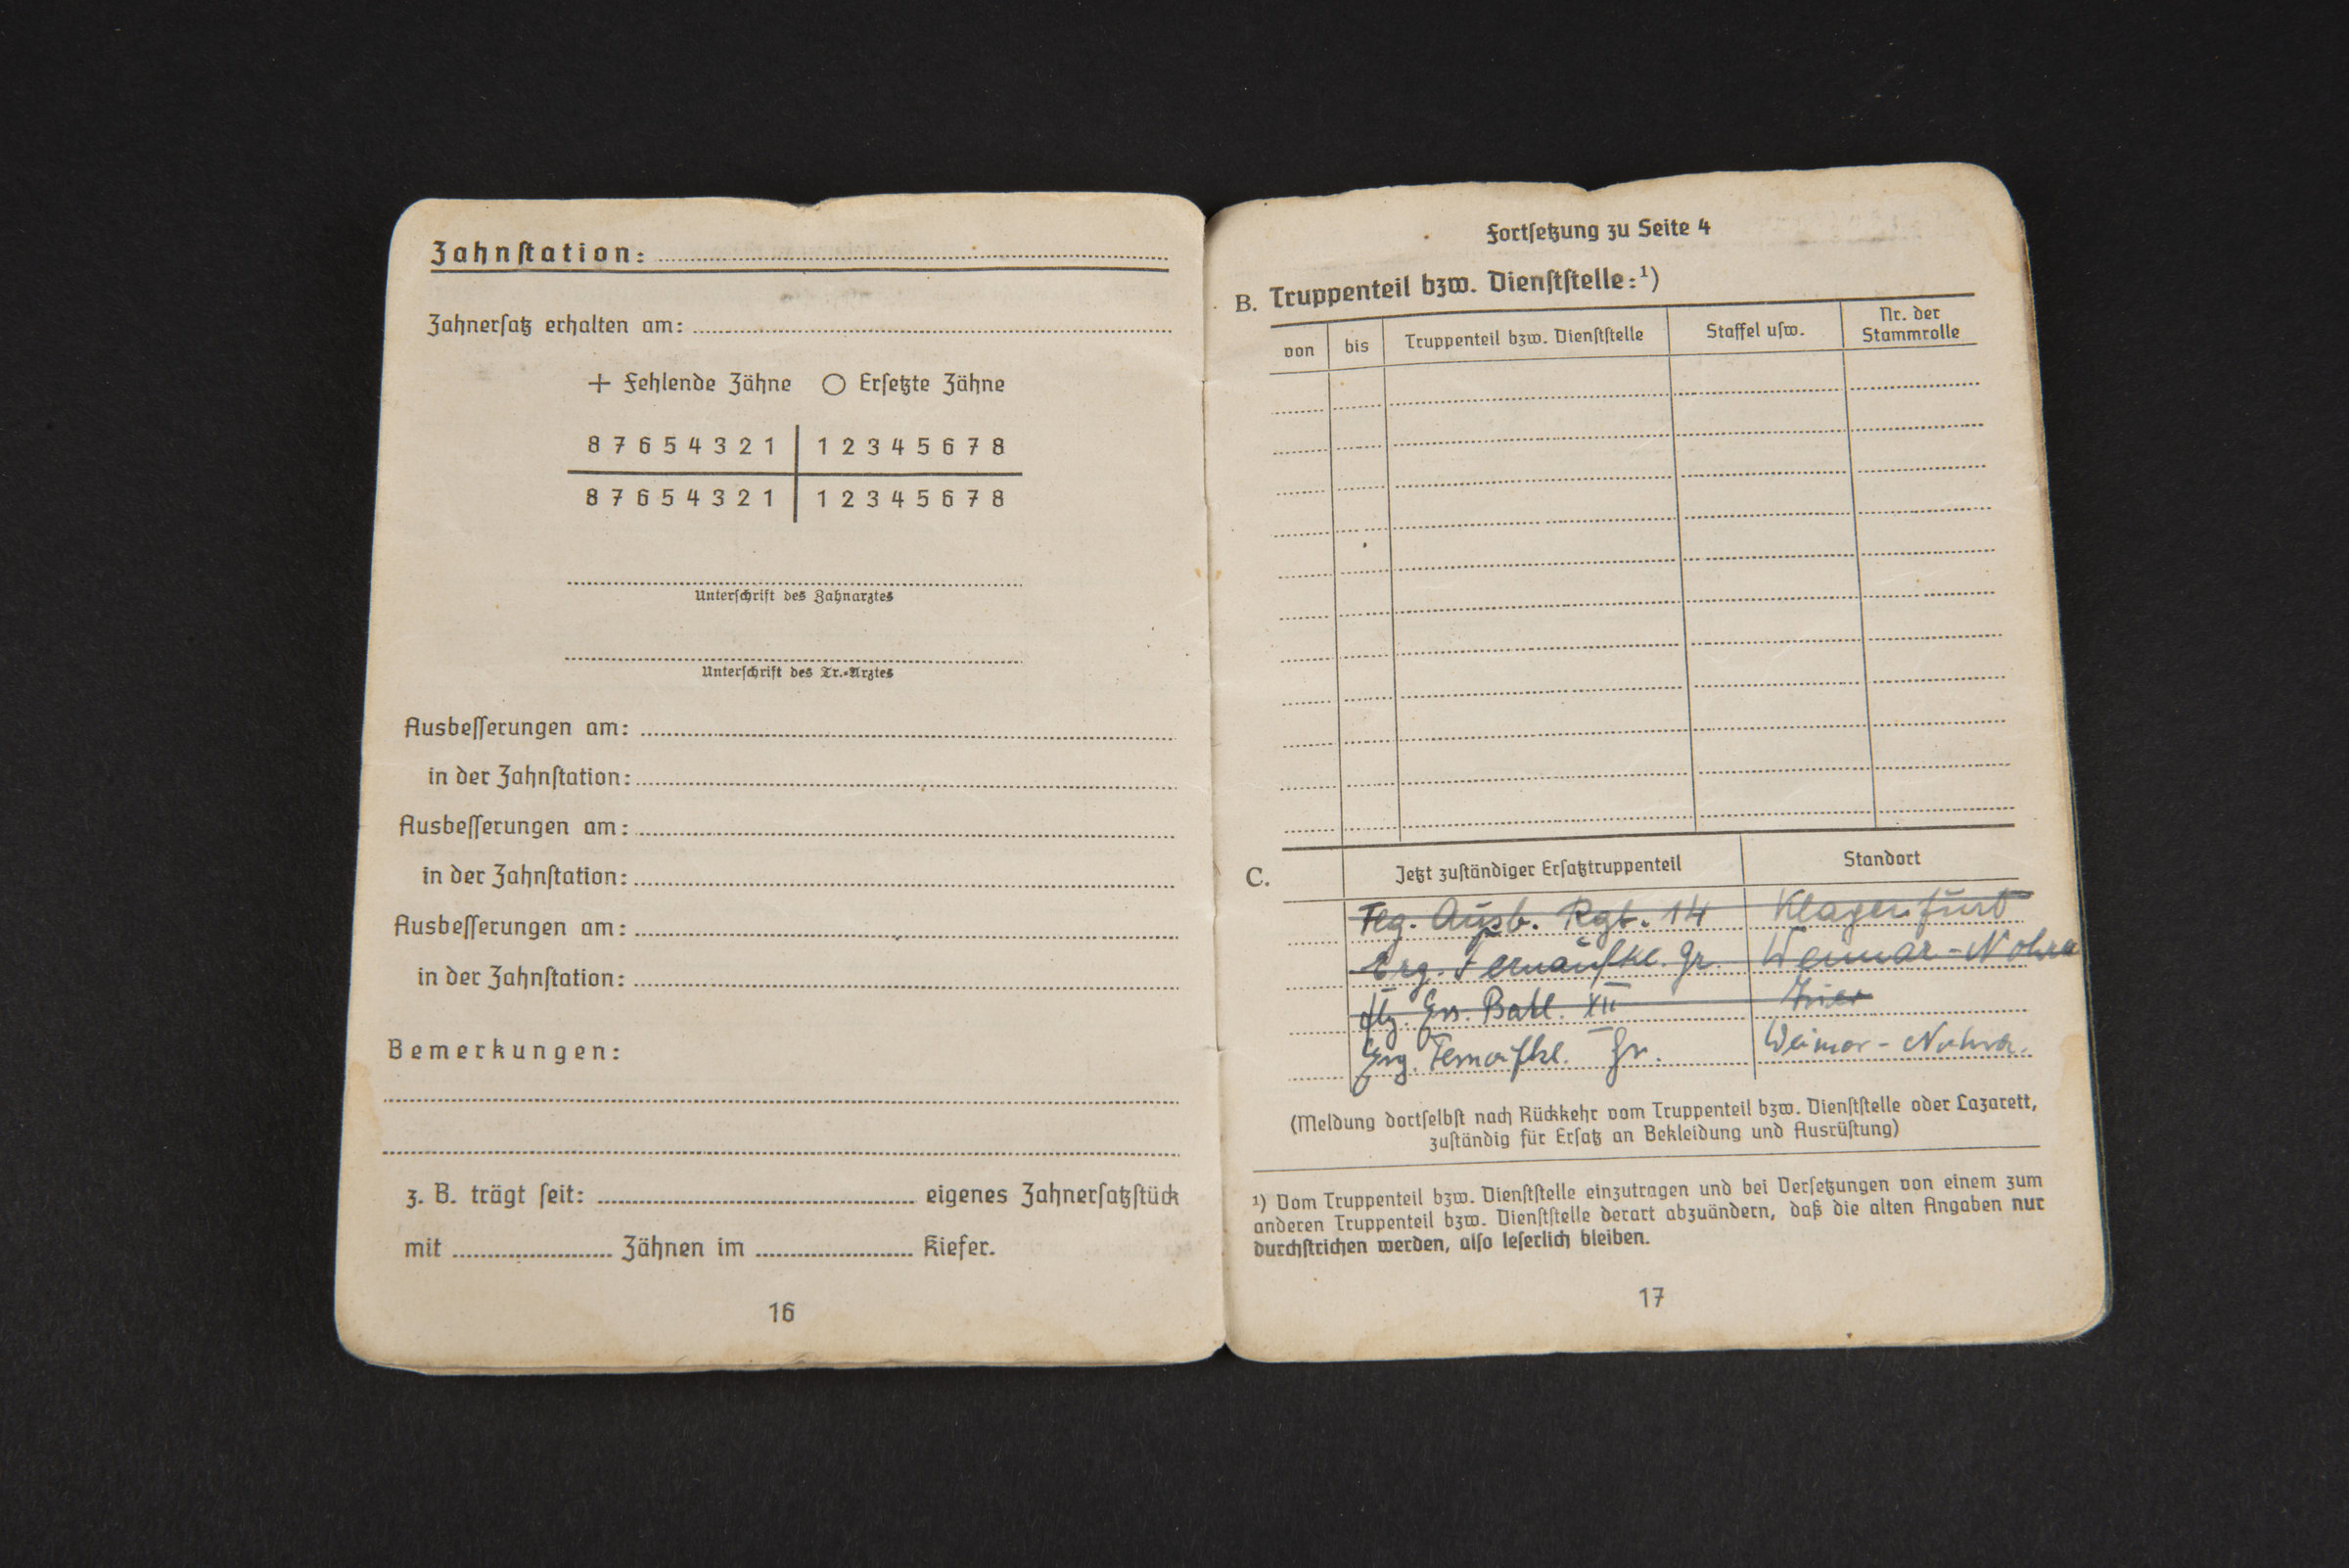 Zahnstation:
Zahnersatz erhalten am:
+ Fehlende Zähne ○ Ersetzte Zähne
8 7 6 5 4 3 2 1 | 1 2 3 4 5 6 7 8
8 7 6 5 4 3 2 1 | 1 2 3 4 5 6 7 8
Unterschrift des Zahnarztes
Unterschrift des Tr.-Arztes
Ausbesserungen am:
in der Zahnstation:
Ausbesserungen am:
in der Zahnstation:
Ausbesserungen am:
in der Zahnstation:
Bemerkungen:
z. B. trägt seit: eigenes Zahnersatzstück
mit Zähnen im Kiefer.
16
Fortsetzung zu Seite 4
B. Truppenteil bzw. Dienststelle:¹)
von bis Truppenteil bzw. Dienststelle Staffel usw. Nr. der Stammrolle
C. Jetzt zuständiger Ersatztruppenteil Standort
Flg. Ausb. Rgt. 14 Klagenfurt
Erg. Fernaufkl. Gr. Weimar-Nohra
Flg. Ers. Batl. XII Trier
Erg. Fernaufkl. Gr. Weimar-Nohra.
(Meldung dortselbst nach Rückkehr vom Truppenteil bzw. Dienststelle oder Lazarett,
zuständig für Ersatz an Bekleidung und Ausrüstung)
¹) Vom Truppenteil bzw. Dienststelle einzutragen und bei Versetzungen von einem zum
anderen Truppenteil bzw. Dienststelle derart abzuändern, daß die alten Angaben nur
durchstrichen werden, also leserlich bleiben.
17